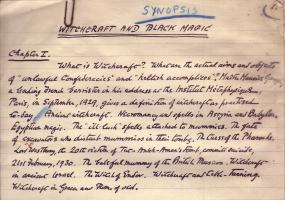 SYNOPSIS
WITCHCRAFT AND BLACK MAGIC
Chapter I.
What is Witchcraft? What are the actual aims and objects
of "unlawful Confederacies" and "hellish accomplices". Maître Maurice Garçon,
a leading French barrister in his address at the Institut Metaphysique,
Paris, in September, 1929, gives a definition of witchcraft as practised
to-day. Ancient witchcraft. Necromancy and spells in Assyria and Babylon.
Egyptian magic. The ill-luck spells attached to mummies. The fate
of excavators who disturb mummies in their tombs. The Curse of the Pharaohs.
Lord Westbury, the 20th victim of Tut-Ankh-Amen's tomb, commits suicide,
21st February, 1930. The baleful mummy of the British Museum. Witchcraft
in ancient Israel. The Witch of Endor. Witchcraft and
Witchcraft in Greece and Rome of old.